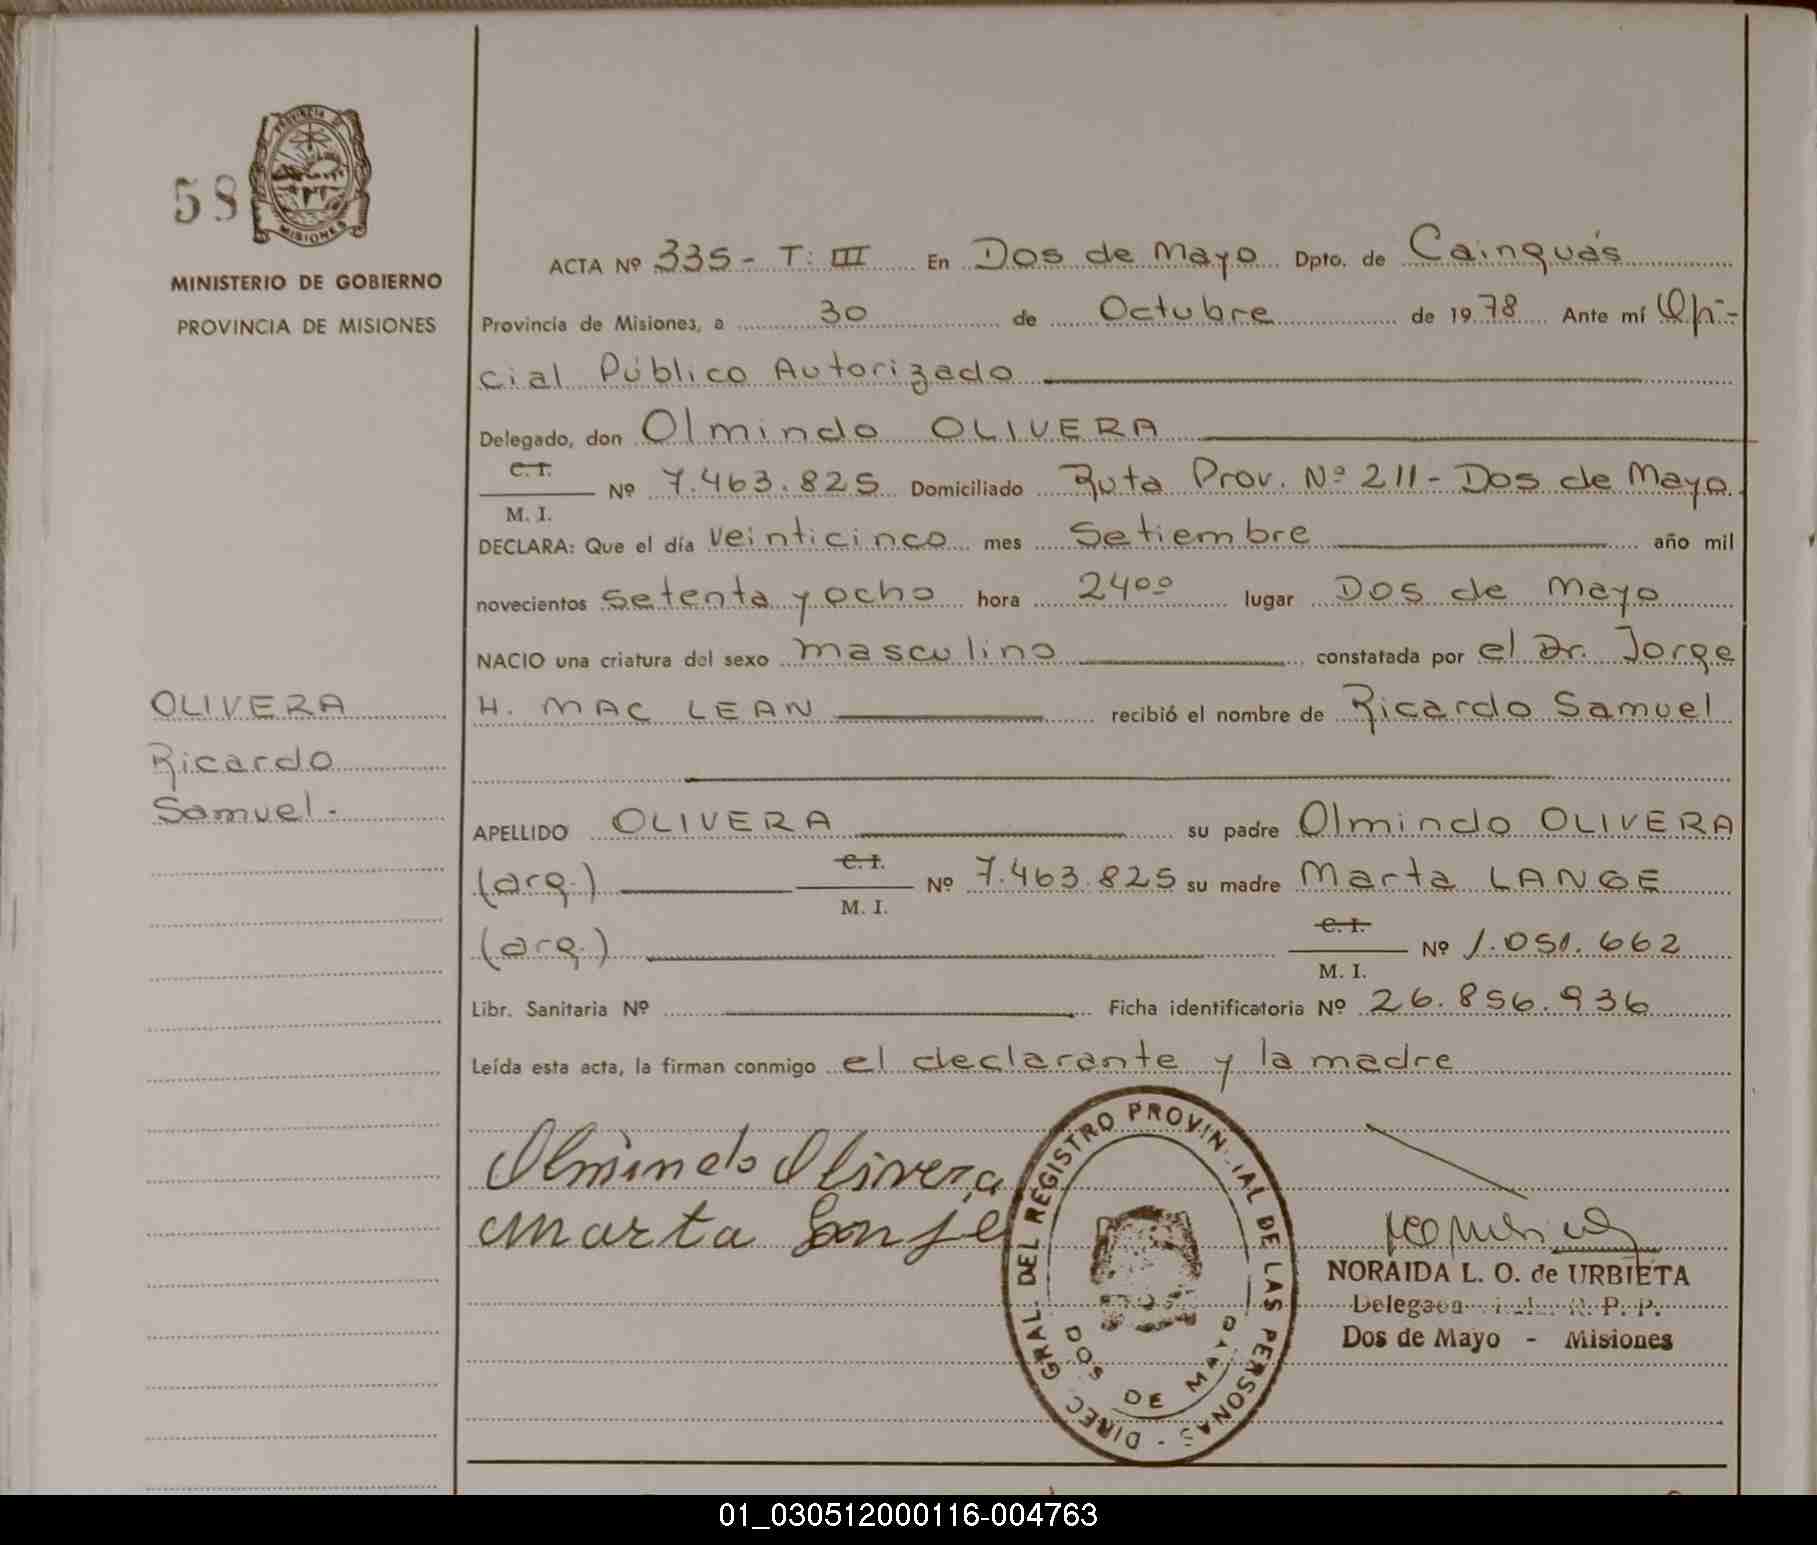 58
PROVINCIA DE
MISIONES
MINISTERIO DE GOBIERNO
PROVINCIA DE MISIONES
ACTA Nº 335 - T: III En Dos de Mayo Dpto. de Cainguás
Provincia de Misiones, a 30 de Octubre de 1978 Ante mí Ofi-
cial Público Autorizado
Delegado, don Olmindo OLIVERA
C. I.
M. I. Nº 7.463.825 Domiciliado Ruta Prov. Nº 211 - Dos de Mayo
DECLARA: Que el día veinticinco mes Setiembre año mil
novecientos setenta y ocho hora 24ºº lugar Dos de Mayo
NACIO una criatura del sexo masculino constatada por el Dr. Jorge
H. MAC LEAN recibió el nombre de Ricardo Samuel
OLIVERA
Ricardo
Samuel.-
APELLIDO OLIVERA su padre Olmindo OLIVERA
(arg.) C. I.
M. I. Nº 7.463.825 su madre Marta LANGE
(arg.) C. I.
M. I. Nº 1.051.662
Libr. Sanitaria Nº Ficha identificatoria Nº 26.856.936
Leída esta acta, la firman conmigo el declarante y la madre
Olmindo Olivera
Marta Lange
DIREC. GRAL. DEL REGISTRO PROVINCIAL DE LAS PERSONAS -
DOS DE MAYO
NORAIDA L. O. de URBIETA
R. P. P.
Dos de Mayo - Misiones
01_030512000116-004763